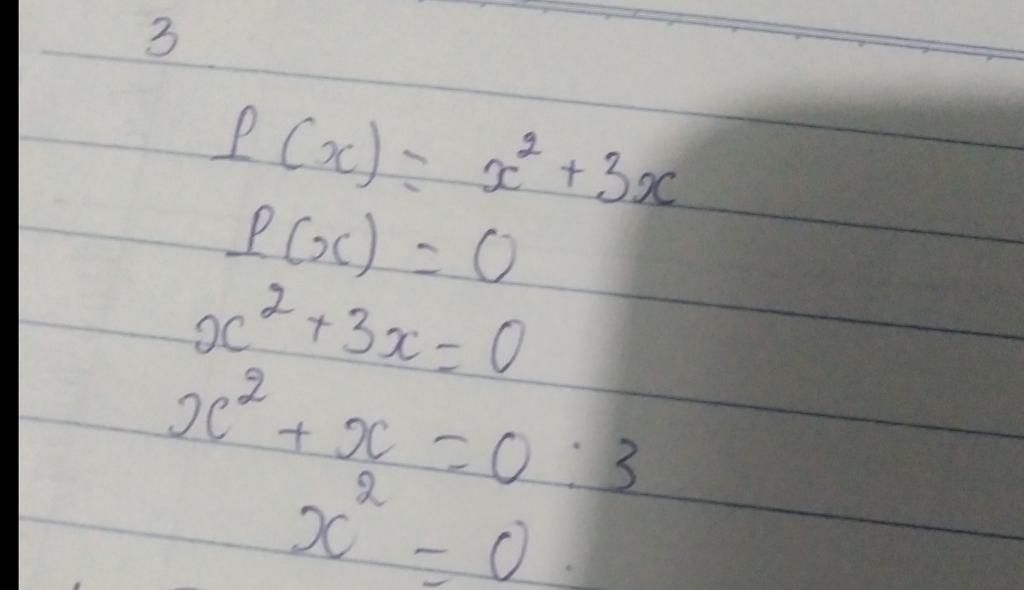 3
P(x) = x² + 3x
P(x) = 0
x² + 3x = 0
x² + x = 0 : 3
x² = 0